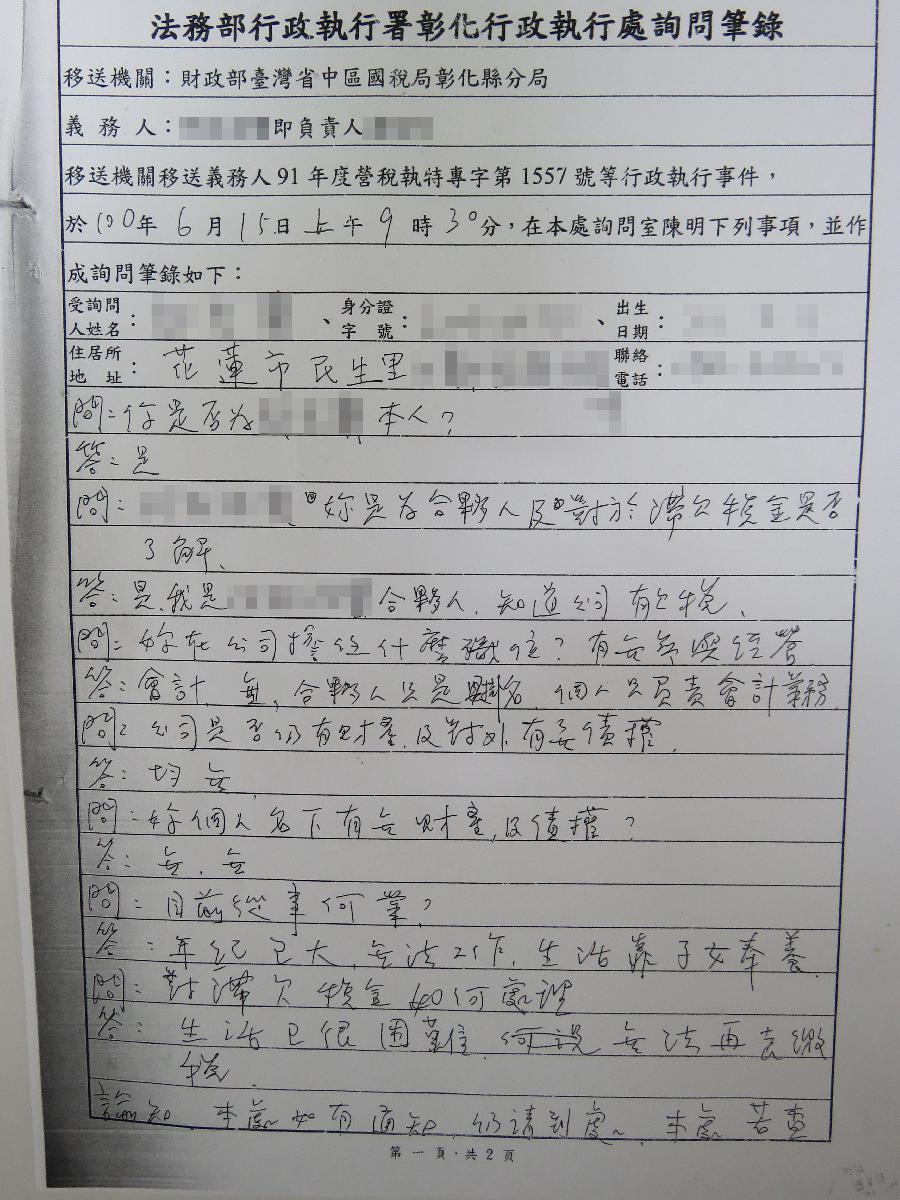 法務部行政執行署彰化行政執行處詢問筆錄
移送機關：財政部臺灣省中區國稅局彰化縣分局
義務人：即負責人
移送機關移送義務人91年度營稅執特專字第1557號等行政執行事件，
於100年6月15日上午9時30分，在本處詢問室陳明下列事項，並作
成詢問筆錄如下：
受詢問人姓名：、身分證字號：、出生日期：
住居所地址：花蓮市民生里 聯絡電話：
問：你是否為 本人？
答：是
問： 妳是為合夥人及對於滯欠稅金是否
了解、
答：是，我是 合夥人，知道公司有欠稅、
問：妳在公司擔任什麼職位？有無參與經營
答：會計，無，合夥人只是掛名，個人只負責會計業務
問：公司是否仍有財產，及對外有無債權
答：均無
問：妳個人名下有無財產，及債權？
答：無、無
問：目前從事何業？
答：年紀已大，無法工作，生活靠子女奉養
問：對滯欠稅金如何處理
答：生活已很困難，何說無法再去繳
稅、
諭知 本處如有通知，仍請到處、本處若查
第一頁·共2頁